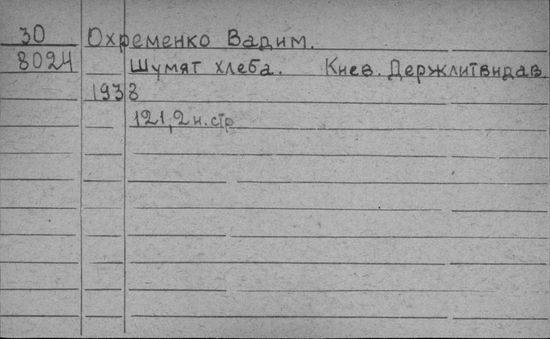 30 Охременко Вадим.
8024 Шумят хлеба. Киев. Держлитвидав
1938
121, 2 н. стр